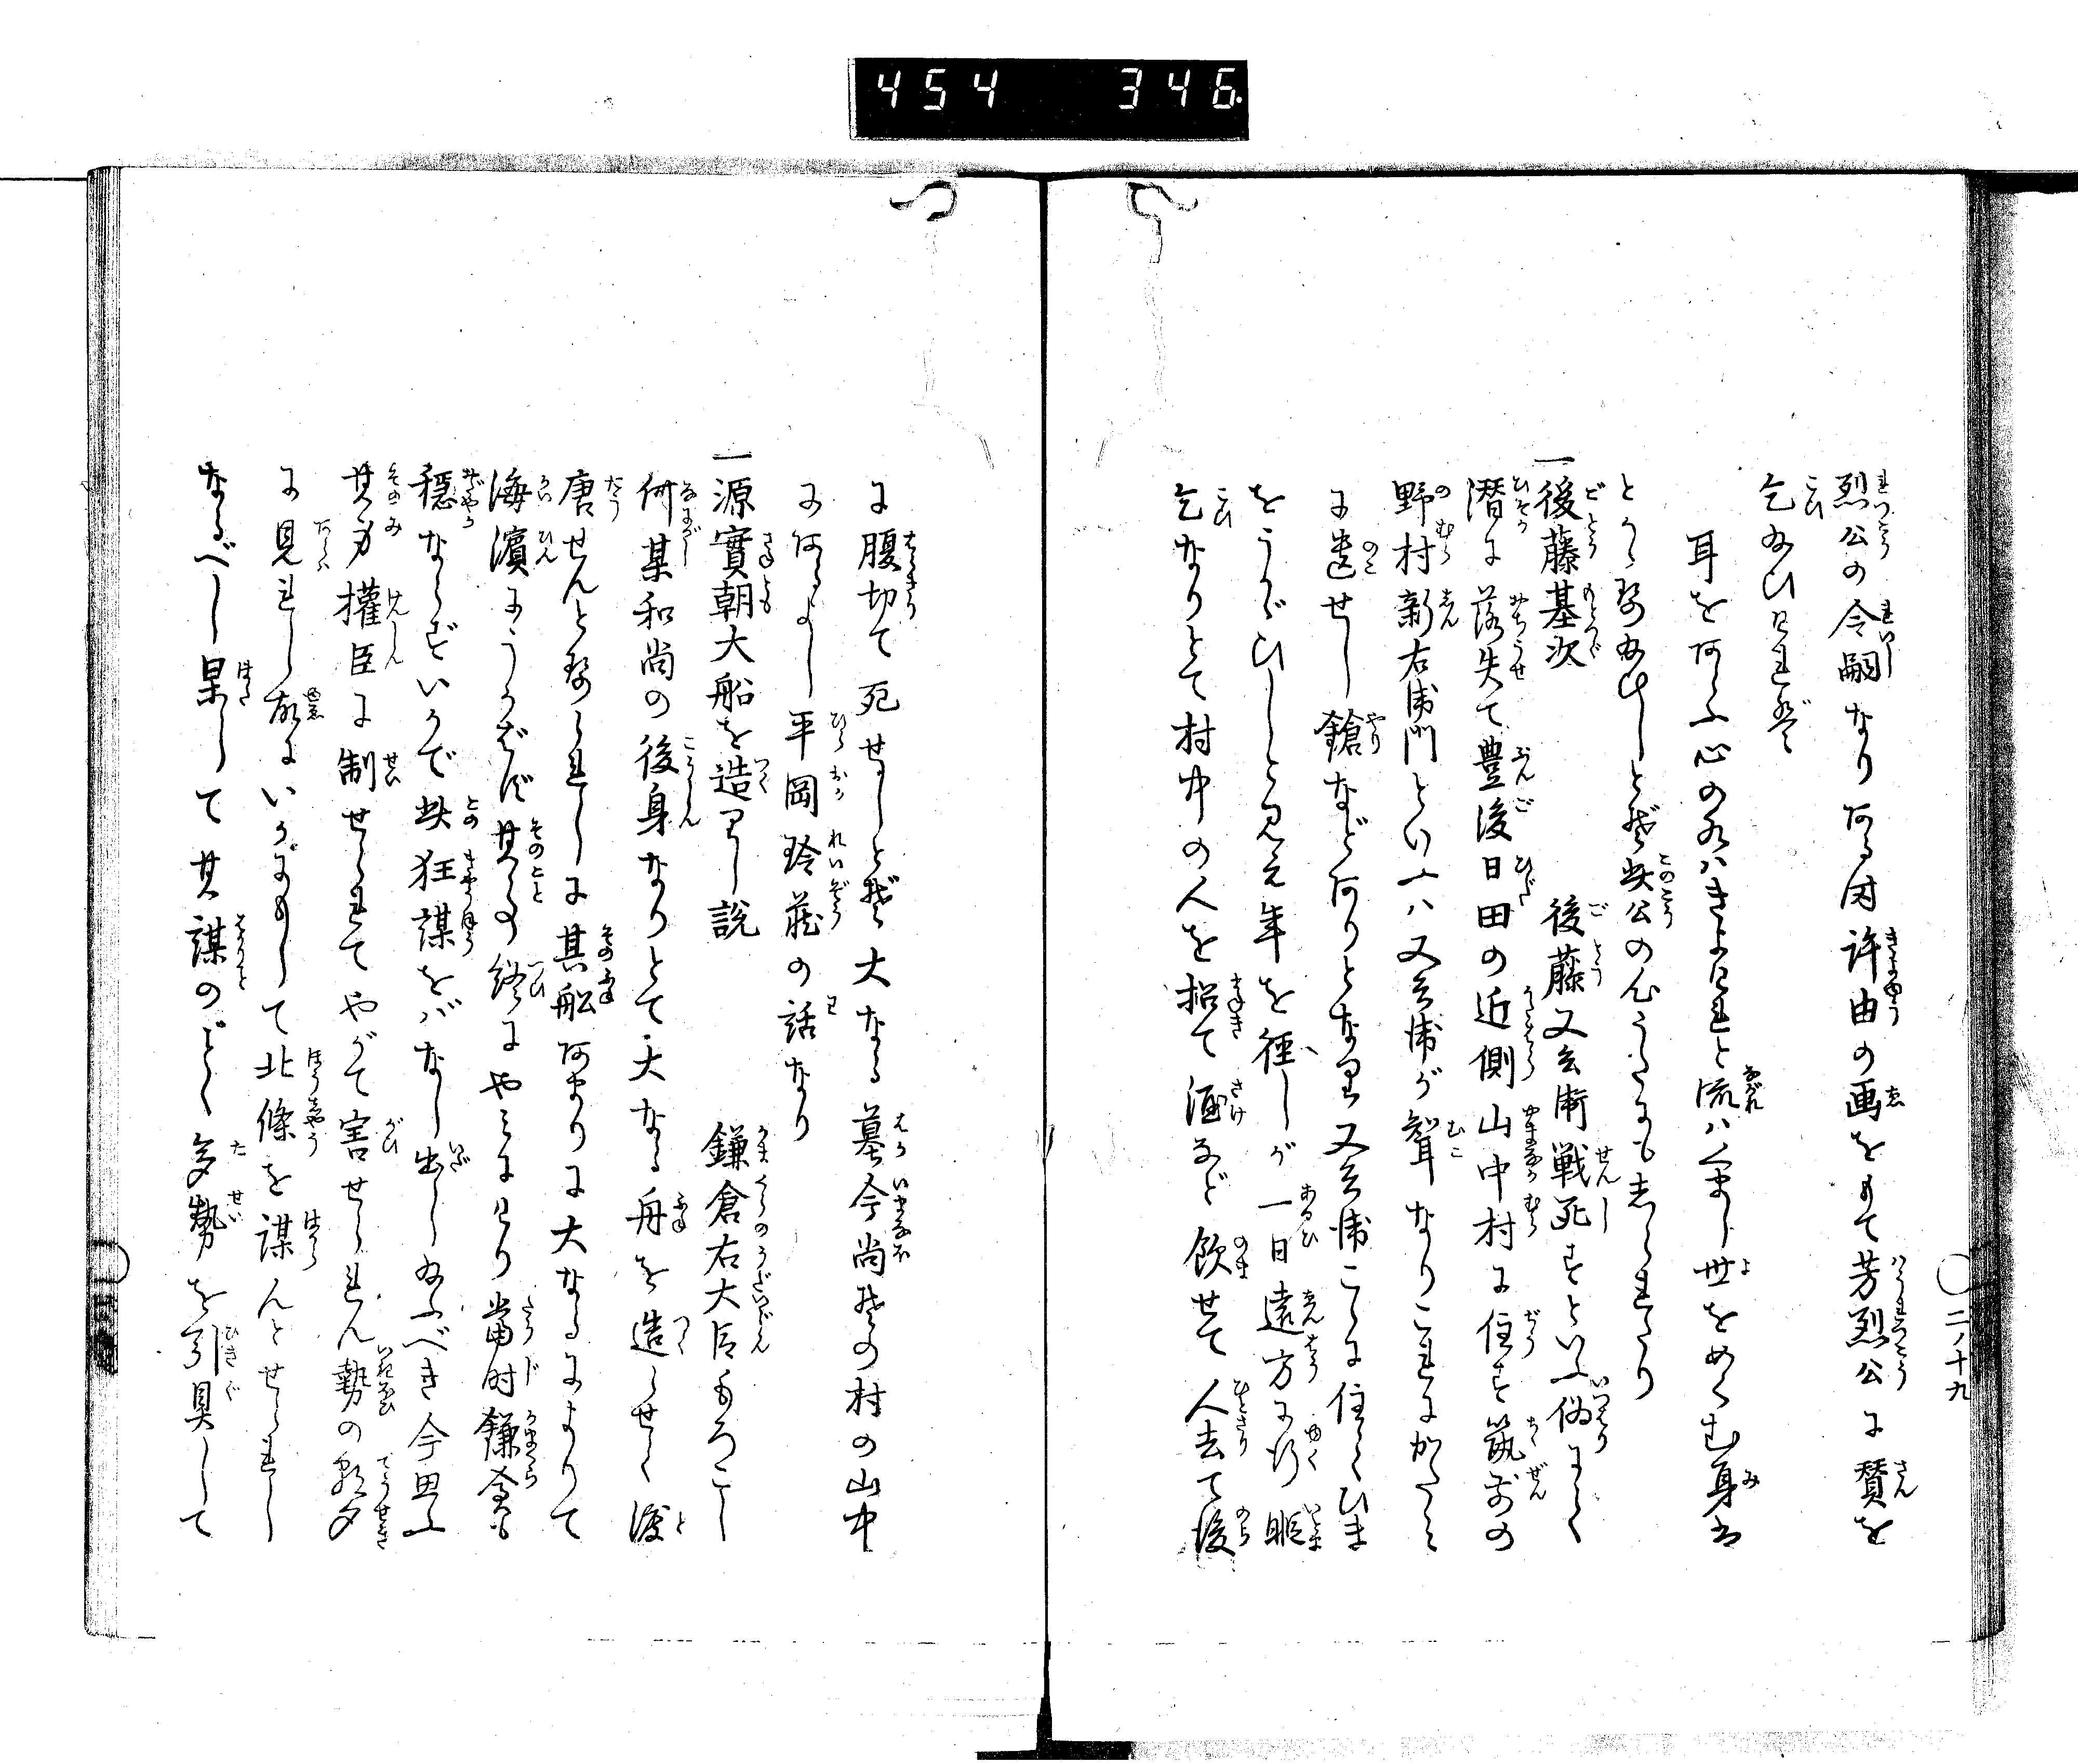 454 346
二ノ十九
烈公の令嗣なり有る時許由の画をもて芳烈公に賛を
乞給ひけれバ
耳をあらふ心の水ハきよけれと流ハくまし世をめくむ身は
とかゝせ給ひしとぞ此公の心うたにもしられたり
一後藤基次 後藤又兵衛戦死すといふ偽にて
潜に落失て豊後日田の近側山中村に住す筑前の
野村新右衛門といふハ又兵衛が聟なりこれにかたみ
に遣せし鎗などありとなり又兵衛こゝに住てひま
をうかゞひしと見え年を経しが一日遠方に行暇
乞なりとて村中の人を招て酒など飲せて人去て後
に腹切て死せしとぞ大なる墓今尚其の村の山中
にあるよし平岡玲蔵の話なり
一源實朝大船を造りし説 鎌倉右大臣もろこし
何某和尚の後身なりとて大なる舟を造らせて渡
唐せんとせられしに其船あまりに大なるによりて
海濱にうかばず其事終にやみにけり當時鎌倉も
穏ならずいかで此狂謀をバなし出し給ふべき今思ふ
其身権臣に制せられてやがて害せられん勢の朝夕
に見れし故にいかにもして北條を謀んとせられし
なるべし果して其謀のごとく多勢を引具して